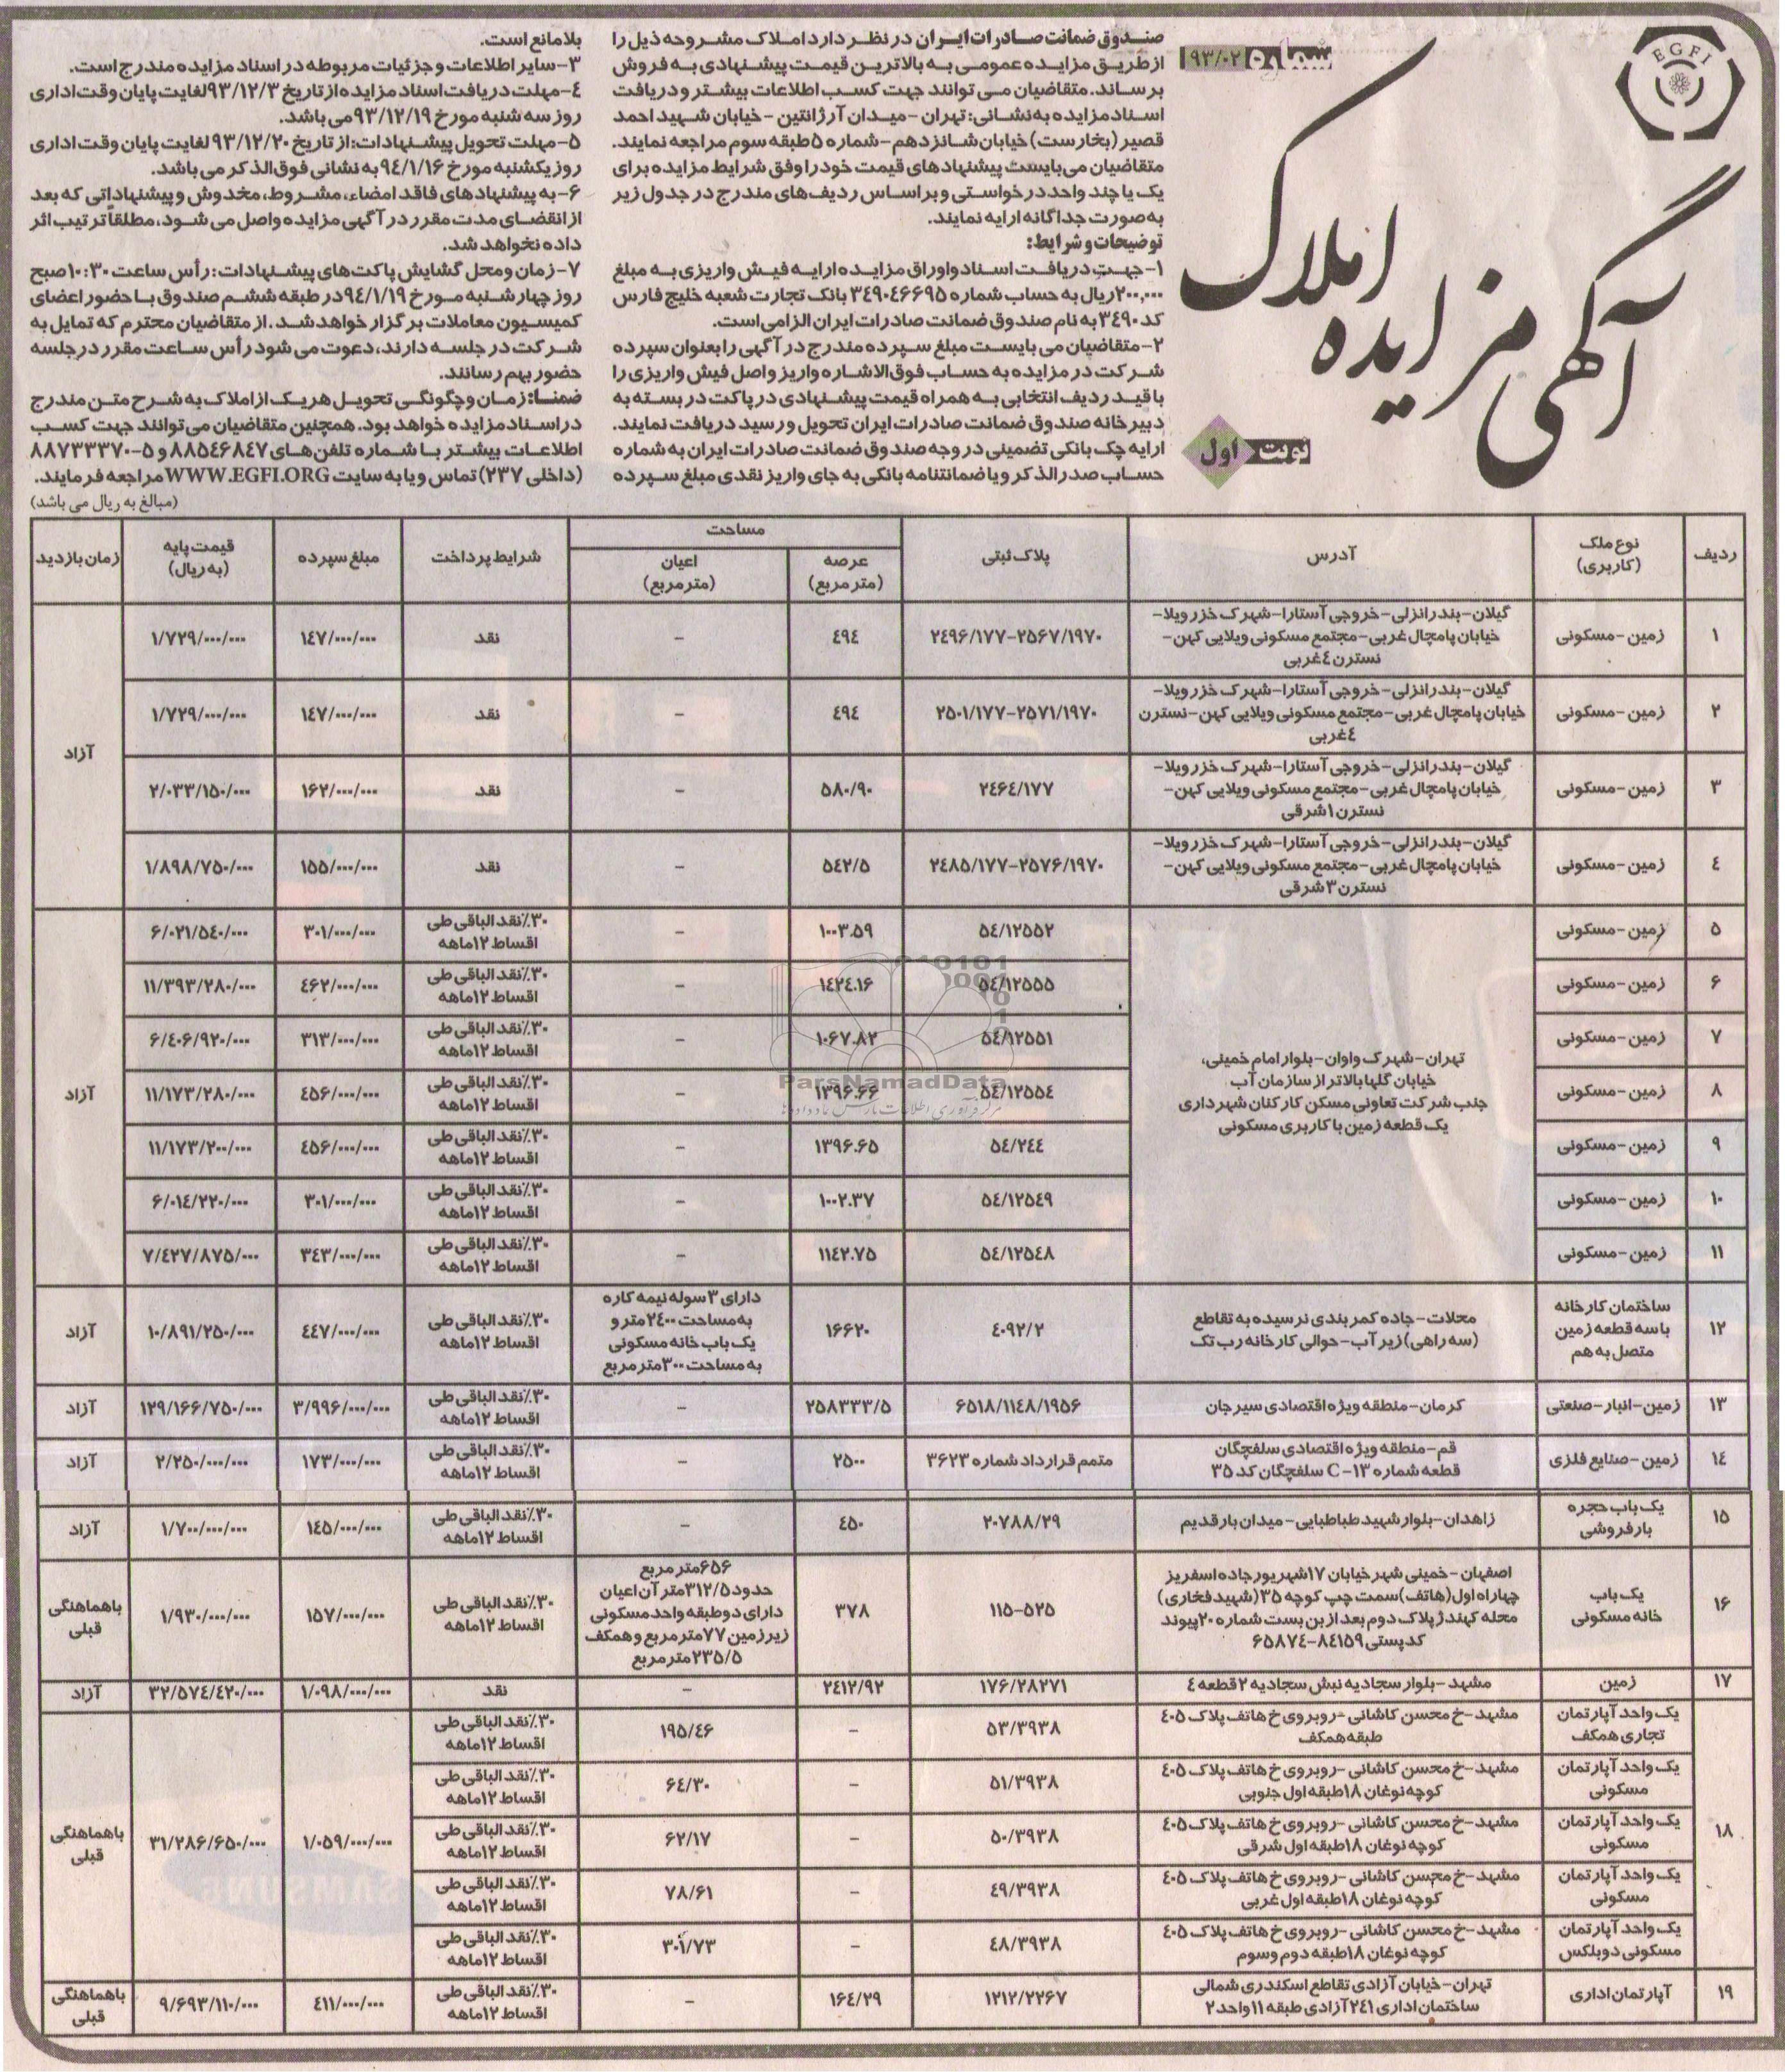 EGFI
شماره ۹۳/۰۲
آگهی مزایده املاک
نوبت اول
صندوق ضمانت صادرات ایران در نظر دارد املاک مشروحه ذیل را
از طریق مزایده عمومی به بالاترین قیمت پیشنهادی به فروش
برساند. متقاضیان می توانند جهت کسب اطلاعات بیشتر و دریافت
اسناد مزایده به نشانی: تهران -میدان آرژانتین -خیابان شهید احمد
قصیر (بخارست) خیابان شانزدهم-شماره ۵ طبقه سوم مراجعه نمایند.
متقاضیان می‌بایست پیشنهادهای قیمت خود را وفق شرایط مزایده برای
یک یا چند واحد درخواستی و براساس ردیف‌های مندرج در جدول زیر
به صورت جداگانه ارایه نمایند.
توضیحات و شرایط:
۱-جهت دریافت اسناد و اوراق مزایده ارایه فیش واریزی به مبلغ
۲۰۰,۰۰۰ریال به حساب شماره ۳۴۹۰۴۶۶۹۵ بانک تجارت شعبه خلیج فارس
کد ۳٤۹۰ به نام صندوق ضمانت صادرات ایران الزامی است.
۲-متقاضیان می بایست مبلغ سپرده مندرج در آگهی را بعنوان سپرده
شرکت در مزایده به حساب فوق الاشاره واریز و اصل فیش واریزی را
با قید ردیف انتخابی به همراه قیمت پیشنهادی در پاکت در بسته به
دبیرخانه صندوق ضمانت صادرات ایران تحویل و رسید دریافت نمایند.
ارایه چک بانکی تضمینی در وجه صندوق ضمانت صادرات ایران به شماره
حساب صدرالذکر و یا ضمانتنامه بانکی به جای واریز نقدی مبلغ سپرده
بلامانع است.
۳-سایر اطلاعات و جزئیات مربوطه در اسناد مزایده مندرج است.
٤-مهلت دریافت اسناد مزایده از تاریخ ۹۳/۱۲/۳ لغایت پایان وقت اداری
روز سه شنبه مورخ ۹۳/۱۲/۱۹ می باشد.
۵-مهلت تحویل پیشنهادات: از تاریخ ۹۳/۱۲/۲۰ لغایت پایان وقت اداری
روز یکشنبه مورخ ۹٤/۱/۱۶ به نشانی فوق الذکر می باشد.
۶-به پیشنهادهای فاقد امضاء، مشروط، مخدوش و پیشنهاداتی که بعد
از انقضای مدت مقرر در آگهی مزایده واصل می شود، مطلقاً ترتیب اثر
داده نخواهد شد.
۷-زمان و محل گشایش پاکت‌های پیشنهادات: رأس ساعت ۱۰:۳۰ صبح
روز چهارشنبه مورخ ۹٤/۱/۱۹ در طبقه ششم صندوق با حضور اعضای
کمیسیون معاملات برگزار خواهد شد. از متقاضیان محترم که تمایل به
شرکت در جلسه دارند، دعوت می شود رأس ساعت مقرر در جلسه
حضور بهم رسانند.
ضمنا: زمان و چگونگی تحویل هر یک از املاک به شرح متن مندرج
در اسناد مزایده خواهد بود. همچنین متقاضیان می توانند جهت کسب
اطلاعات بیشتر با شماره تلفن‌های ۸۸۵٤۶۸٤۷ و ۵-۸۸۷۳۳۳۷۰
(داخلی ۲۳۷) تماس و یا به سایت WWW.EGFI.ORG مراجعه فرمایند.
(مبالغ به ریال می باشد)
ردیف نوع ملک (کاربری) آدرس پلاک ثبتی مساحت عرصه (مترمربع) اعیان (مترمربع) شرایط پرداخت مبلغ سپرده قیمت پایه (به ریال) زمان بازدید
۱ زمین-مسکونی گیلان-بندرانزلی-خروجی آستارا-شهرک خزر ویلا-
خیابان پامچال غربی-مجتمع مسکونی ویلایی کهن-
نسترن ٤ غربی ۲٤۹۶/۱۷۷-۲۵۶۷/۱۹۷۰ ٤۹٤ - نقد ۱٤۷/۰۰۰/۰۰۰ ۱/۷۲۹/۰۰۰/۰۰۰ آزاد
۲ زمین-مسکونی گیلان-بندرانزلی-خروجی آستارا-شهرک خزر ویلا-
خیابان پامچال غربی-مجتمع مسکونی ویلایی کهن-نسترن
٤ غربی ۲۵۰۱/۱۷۷-۲۵۷۱/۱۹۷۰ ٤۹٤ - نقد ۱٤۷/۰۰۰/۰۰۰ ۱/۷۲۹/۰۰۰/۰۰۰
۳ زمین-مسکونی گیلان-بندرانزلی-خروجی آستارا-شهرک خزر ویلا-
خیابان پامچال غربی-مجتمع مسکونی ویلایی کهن-
نسترن ۱ شرقی ۲٤۶٤/۱۷۷ ۵۸۰/۹۰ - نقد ۱۶۲/۰۰۰/۰۰۰ ۲/۰۳۳/۱۵۰/۰۰۰
٤ زمین-مسکونی گیلان-بندرانزلی-خروجی آستارا-شهرک خزر ویلا-
خیابان پامچال غربی-مجتمع مسکونی ویلایی کهن-
نسترن ۳ شرقی ۲٤۸۵/۱۷۷-۲۵۷۶/۱۹۷۰ ۵٤۲/۵ - نقد ۱۵۵/۰۰۰/۰۰۰ ۱/۸۹۸/۷۵۰/۰۰۰
تهران-شهرک واوان-بلوار امام خمینی،
خیابان گلها بالاتر از سازمان آب
جنب شرکت تعاونی مسکن کارکنان شهرداری
یک قطعه زمین با کاربری مسکونی
آزاد
۵ زمین-مسکونی ۵٤/۱۲۵۵۲ ۱۰۰۳.۵۹ - ۳۰٪ نقد الباقی طی اقساط ۱۲ ماهه ۳۰۱/۰۰۰/۰۰۰ ۶/۰۲۱/۵٤۰/۰۰۰
۶ زمین-مسکونی ۵٤/۱۲۵۵۵ ۱٤۲٤.۱۶ - ۳۰٪ نقد الباقی طی اقساط ۱۲ ماهه ٤۶۲/۰۰۰/۰۰۰ ۱۱/۳۹۳/۲۸۰/۰۰۰
۷ زمین-مسکونی ۵٤/۱۲۵۵۱ ۱۰۶۷.۸۲ - ۳۰٪ نقد الباقی طی اقساط ۱۲ ماهه ۳۱۳/۰۰۰/۰۰۰ ۶/٤۰۶/۹۲۰/۰۰۰
۸ زمین-مسکونی ۵٤/۱۲۵۵٤ ۱۳۹۶.۶۶ - ۳۰٪ نقد الباقی طی اقساط ۱۲ ماهه ٤۵۶/۰۰۰/۰۰۰ ۱۱/۱۷۳/۲۸۰/۰۰۰
۹ زمین-مسکونی ۵٤/۲٤٤ ۱۳۹۶.۶۵ - ۳۰٪ نقد الباقی طی اقساط ۱۲ ماهه ٤۵۶/۰۰۰/۰۰۰ ۱۱/۱۷۳/۲۰۰/۰۰۰
۱۰ زمین-مسکونی ۵٤/۱۲۵٤۹ ۱۰۰۲.۳۷ - ۳۰٪ نقد الباقی طی اقساط ۱۲ ماهه ۳۰۱/۰۰۰/۰۰۰ ۶/۰۱٤/۲۲۰/۰۰۰
۱۱ زمین-مسکونی ۵٤/۱۲۵٤۸ ۱۱٤۲.۷۵ - ۳۰٪ نقد الباقی طی اقساط ۱۲ ماهه ۳٤۳/۰۰۰/۰۰۰ ۷/٤۲۷/۸۷۵/۰۰۰
ParsNamadData
مرکز فرآوری اطلاعات پارس نماد داده‌ها
۱۲ ساختمان کارخانه
با سه قطعه زمین
متصل به هم محلات-جاده کمربندی نرسیده به تقاطع
(سه راهی) زیر آب-حوالی کارخانه رب تک ٤۰۹۲/۲ ۱۶۶۲۰ دارای ۳ سوله نیمه کاره
به مساحت ۲٤۰۰ متر و
یک باب خانه مسکونی
به مساحت ۳۰۰ مترمربع ۳۰٪ نقد الباقی طی اقساط ۱۲ ماهه ٤٤۷/۰۰۰/۰۰۰ ۱۰/۸۹۱/۲۵۰/۰۰۰ آزاد
۱۳ زمین-انبار-صنعتی کرمان-منطقه ویژه اقتصادی سیرجان ۶۵۱۸/۱۱٤۸/۱۹۵۶ ۲۵۸۳۳۳/۵ - ۳۰٪ نقد الباقی طی اقساط ۱۲ ماهه ۳/۹۹۶/۰۰۰/۰۰۰ ۱۲۹/۱۶۶/۷۵۰/۰۰۰ آزاد
۱٤ زمین-صنایع فلزی قم-منطقه ویژه اقتصادی سلفچگان
قطعه شماره ۱۳-C سلفچگان کد ۳۵ متمم قرارداد شماره ۳۶۲۳ ۲۵۰۰ - ۳۰٪ نقد الباقی طی اقساط ۱۲ ماهه ۱۷۳/۰۰۰/۰۰۰ ۲/۲۵۰/۰۰۰/۰۰۰ آزاد
۱۵ یک باب حجره
بارفروشی زاهدان-بلوار شهید طباطبایی-میدان بار قدیم ۲۰۷۸۸/۲۹ ٤۵۰ - ۳۰٪ نقد الباقی طی اقساط ۱۲ ماهه ۱٤۵/۰۰۰/۰۰۰ ۱/۷۰۰/۰۰۰/۰۰۰ آزاد
۱۶ یک باب
خانه مسکونی اصفهان-خمینی شهر خیابان ۱۷ شهریور جاده اسفریز
چهارراه اول (هاتف) سمت چپ کوچه ۳۵ (شهید فخاری)
محله کهندژ پلاک دوم بعد از بن بست شماره ۲۰ پیوند
کدپستی ۸٤۱۵۹-۶۵۸۷٤ ۱۱۵-۵۲۵ ۳۷۸ ۶۵۶ متر مربع
حدود ۳۱۲/۵ متر آن اعیان
دارای دو طبقه واحد مسکونی
زیرزمین ۷۷ مترمربع و همکف
۲۳۵/۵ مترمربع ۳۰٪ نقد الباقی طی اقساط ۱۲ ماهه ۱۵۷/۰۰۰/۰۰۰ ۱/۹۳۰/۰۰۰/۰۰۰ با هماهنگی قبلی
۱۷ زمین مشهد-بلوار سجادیه نبش سجادیه ۲ قطعه ٤ ۱۷۶/۲۸۲۷۱ ۲٤۱۲/۹۲ - نقد ۱/۰۹۸/۰۰۰/۰۰۰ ۳۲/۵۷٤/٤۲۰/۰۰۰ آزاد
۱۸ یک واحد آپارتمان
تجاری همکف مشهد-خ محسن کاشانی-روبروی خ هاتف پلاک ٤۰۵
طبقه همکف ۵۳/۳۹۳۸ - ۱۹۵/٤۶ ۳۰٪ نقد الباقی طی اقساط ۱۲ ماهه ۱/۰۵۹/۰۰۰/۰۰۰ ۳۱/۲۸۶/۶۵۰/۰۰۰ با هماهنگی قبلی
یک واحد آپارتمان
مسکونی مشهد-خ محسن کاشانی-روبروی خ هاتف پلاک ٤۰۵
کوچه نوغان ۱۸ طبقه اول جنوبی ۵۱/۳۹۳۸ - ۶٤/۳۰ ۳۰٪ نقد الباقی طی اقساط ۱۲ ماهه
یک واحد آپارتمان
مسکونی مشهد-خ محسن کاشانی-روبروی خ هاتف پلاک ٤۰۵
کوچه نوغان ۱۸ طبقه اول شرقی ۵۰/۳۹۳۸ - ۶۲/۱۷ ۳۰٪ نقد الباقی طی اقساط ۱۲ ماهه
یک واحد آپارتمان
مسکونی مشهد-خ محسن کاشانی-روبروی خ هاتف پلاک ٤۰۵
کوچه نوغان ۱۸ طبقه اول غربی ٤۹/۳۹۳۸ - ۷۸/۶۱ ۳۰٪ نقد الباقی طی اقساط ۱۲ ماهه
یک واحد آپارتمان
مسکونی دوبلکس مشهد-خ محسن کاشانی-روبروی خ هاتف پلاک ٤۰۵
کوچه نوغان ۱۸ طبقه دوم و سوم ٤۸/۳۹۳۸ - ۳۰۱/۷۳ ۳۰٪ نقد الباقی طی اقساط ۱۲ ماهه
۱۹ آپارتمان اداری تهران-خیابان آزادی تقاطع اسکندری شمالی
ساختمان اداری ۲٤۱ آزادی طبقه ۱۱ واحد ۲ ۱۲۱۲/۲۲۶۷ ۱۶٤/۲۹ - ۳۰٪ نقد الباقی طی اقساط ۱۲ ماهه ٤۱۱/۰۰۰/۰۰۰ ۹/۶۹۳/۱۱۰/۰۰۰ با هماهنگی قبلی